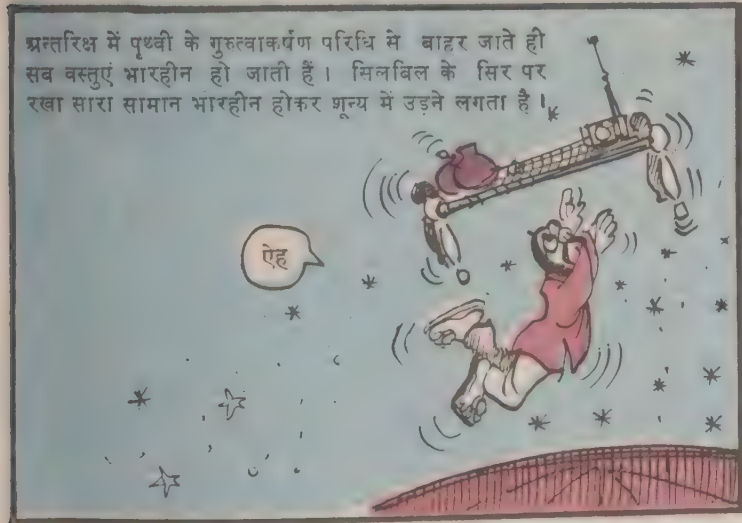 अन्तरिक्ष में पृथ्वी के गुरुत्वाकर्षण परिधि से बाहर जाते ही
सब वस्तुएं भारहीन हो जाती हैं। सिलबिल के सिर पर
रखा सारा सामान भारहीन होकर शून्य में उड़ने लगता है।
ऐह